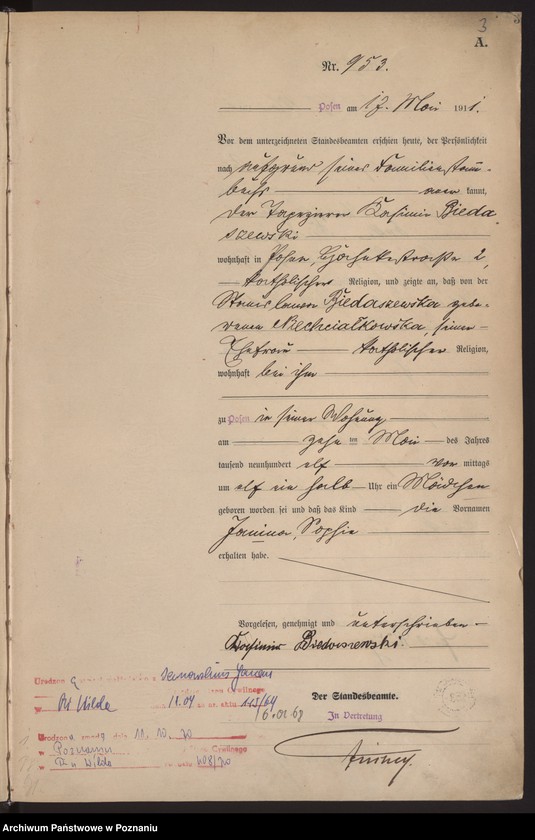 3
A.
Nr. 953.
Posen am 17. Mai 1911.
Vor dem unterzeichneten Standesbeamten erschien heute, der Persönlichkeit
nach aufgrund seines Familienstamm-
buchs kannt,
der Tapezierer Kasimir Bieda
szewski
wohnhaft in Posen, 2,
katholischer Religion, und zeigte an, daß von der
Stanislawa Biedaszewska gebo-
renen Niechciałkowska, seiner
Ehefrau katholischer Religion,
wohnhaft bei ihm
zu Posen in seiner Wohnung
am zehn ten Mai des Jahres
tausend neunhundert elf vor mittags
um elf ein halb Uhr ein Mädchen
geboren worden sei und daß das Kind die Vornamen
Janina, Sophie
erhalten habe.
Vorgelesen, genehmigt und unterschrieben
Kasimir Biedaszewski.
Der Standesbeamte.
In Vertretung
w Pt Wilda 11.04 nr. aktu 145/64
Urodzona zmarła dnia 11.10.70
w Poznaniu
Pń Wilda 408/70
Archiwum Państwowe w Poznaniu